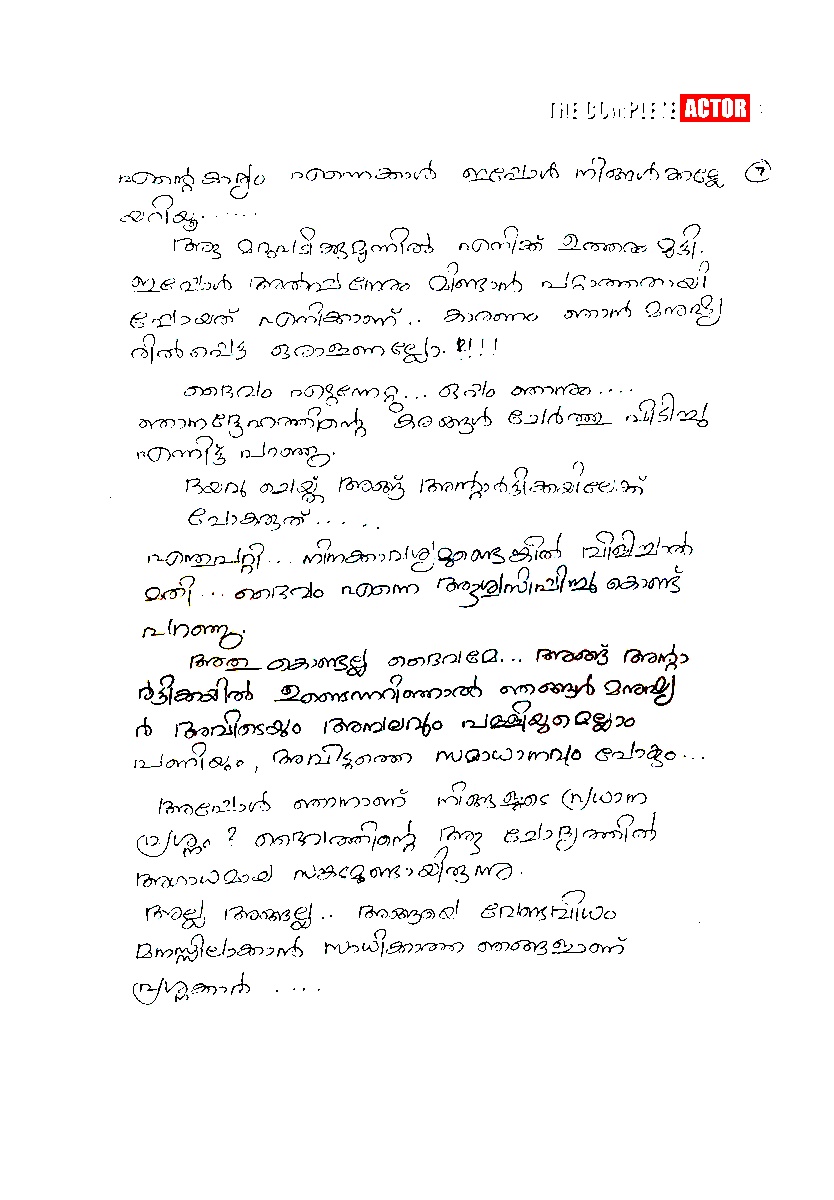 THE COMPLETE ACTOR
എന്റെ കാര്യം എന്നെക്കാൾ ഇപ്പോൾ നിങ്ങൾക്കല്ലേ 7
യറിയൂ......
ആ മറുപടിക്കുമുന്നിൽ എനിക്ക് ഉത്തരം മുട്ടി.
ഇപ്പോൾ അൽപനേരം മിണ്ടാൻ പറ്റാത്തതായി
പ്പോയത് എനിക്കാണ്.. കാരണം ഞാൻ മനുഷ്യ
രിൽപ്പെട്ട ഒരാളാണല്ലോ.!!!!
ദൈവം എഴുന്നേറ്റു... ഒപ്പം ഞാനും....
ഞാനദ്ദേഹത്തിന്റെ കരങ്ങൾ ചേർത്തു പിടിച്ചു
എന്നിട്ട് പറഞ്ഞു.
ദയവു ചെയ്ത് അങ്ങ് അന്റാർട്ടിക്കയിലേക്ക്
പോകരുത്.....
എന്തുപറ്റി... നിനക്കാവശ്യമുണ്ടെങ്കിൽ വിളിച്ചാൽ
മതി... ദൈവം എന്നെ ആശ്വസിപ്പിച്ചു കൊണ്ട്
പറഞ്ഞു.
അതു കൊണ്ടല്ല ദൈവമേ... അങ്ങ് അന്റാ
ർട്ടിക്കയിൽ ഉണ്ടെന്നറിഞ്ഞാൽ ഞങ്ങൾ മനുഷ്യ
ർ അവിടെയും അമ്പലവും പള്ളിയുമെല്ലാം
പണിയും, അവിടുത്തെ സമാധാനവും പോകും...
അപ്പോൾ ഞാനാണ് നിങ്ങളുടെ പ്രധാന
പ്രശ്നം? ദൈവത്തിന്റെ ആ ചോദ്യത്തിൽ
അഗാധമായ സങ്കടമുണ്ടായിരുന്നു.
അല്ല അങ്ങല്ല.. അങ്ങയെ വേണ്ടവിധം
മനസ്സിലാക്കാൻ സാധിക്കാത്ത ഞങ്ങളാണ്
പ്രശ്നക്കാർ ....